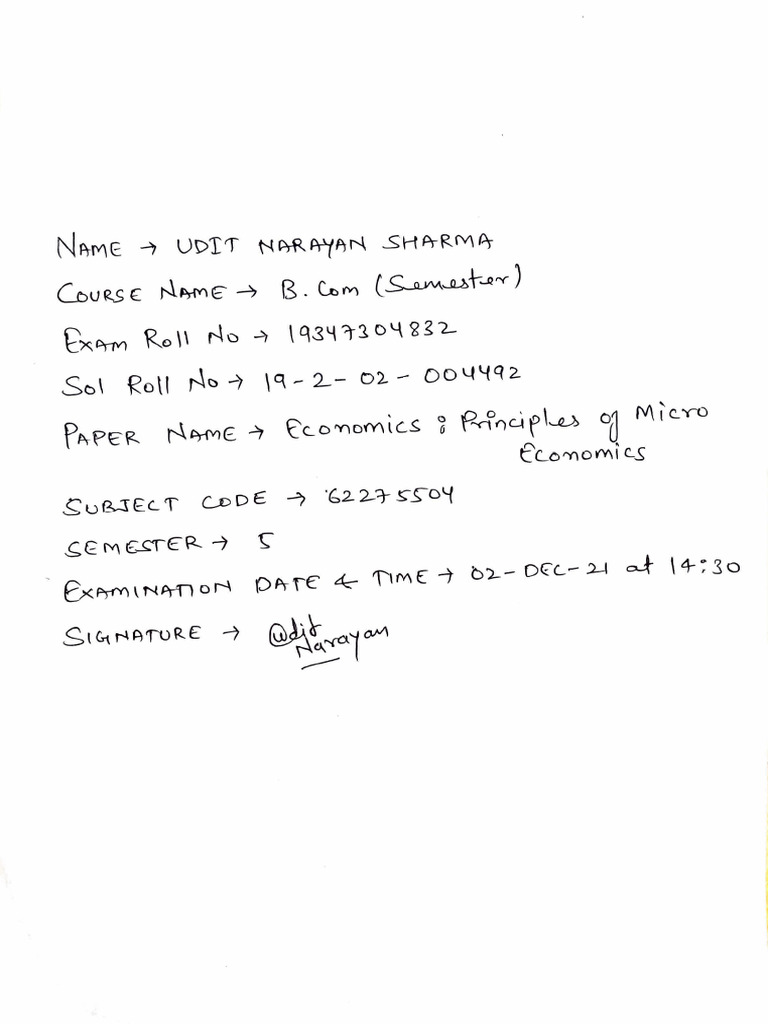 NAME → UDIT NARAYAN SHARMA
COURSE NAME → B. Com (Semester)
EXAM Roll No → 19347304832
Sol Roll No → 19-2-02-004492
PAPER NAME → Economics : Principles of Micro
Economics
SUBJECT CODE → 62275504
SEMESTER → 5
EXAMINATION DATE & TIME → 02-DEC-21 at 14:30
SIGNATURE → @udit
Narayan